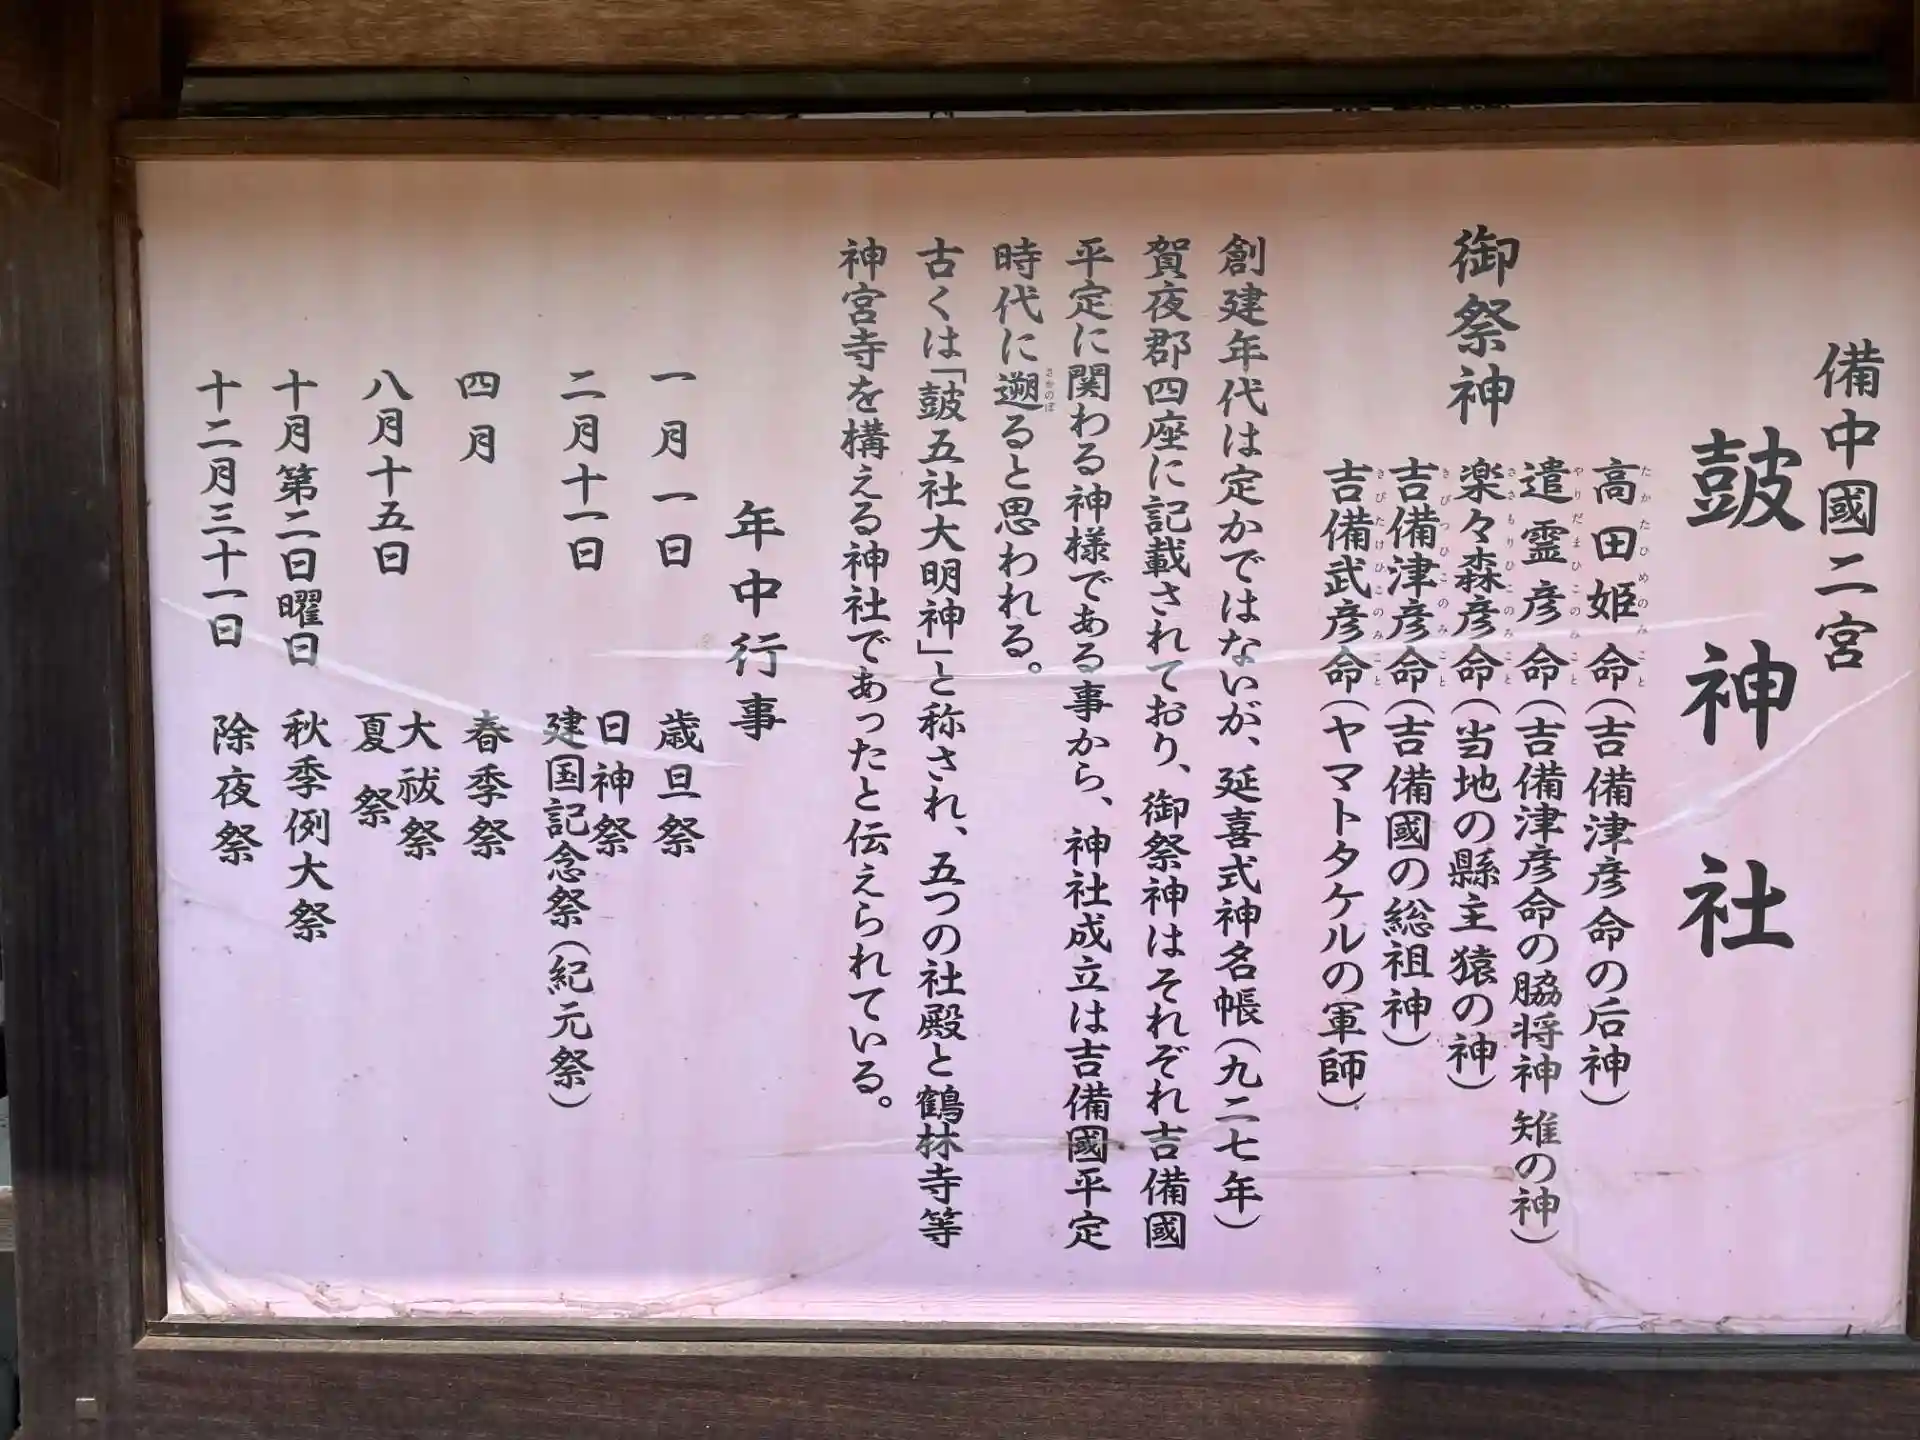 備中國二宮
鼓神社
御祭神
高田姫命(吉備津彦命の后神)
たかたひめのみこと
遣霊彦命(吉備津彦命の脇将神 雉の神)
やりだまひこのみこと
楽々森彦命(当地の縣主猿の神)
ささもりひこのみこと
吉備津彦命(吉備國の総祖神)
きびつひこのみこと
吉備武彦命(ヤマトタケルの軍師)
きびたけひこのみこと
創建年代は定かではないが、延喜式神名帳(九二七年)
賀夜郡四座に記載されており、御祭神はそれぞれ吉備國
平定に関わる神様である事から、神社成立は吉備國平定
時代に遡ると思われる。
さかのぼ
古くは「鼓五社大明神」と称され、五つの社殿と鶴林寺等
神宮寺を構える神社であったと伝えられている。
年中行事
一月一日 歳旦祭
二月十一日 日神祭
建国記念祭(紀元祭)
四月 春季祭
八月十五日 大祓祭
夏祭
十月第二日曜日 秋季例大祭
十二月三十一日 除夜祭